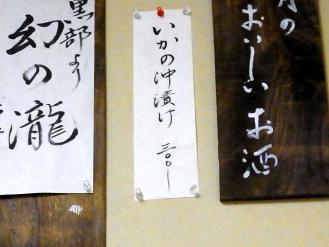 月の
おいしいお酒
いかの沖漬け 三〇〇―
黒部より
幻の瀧